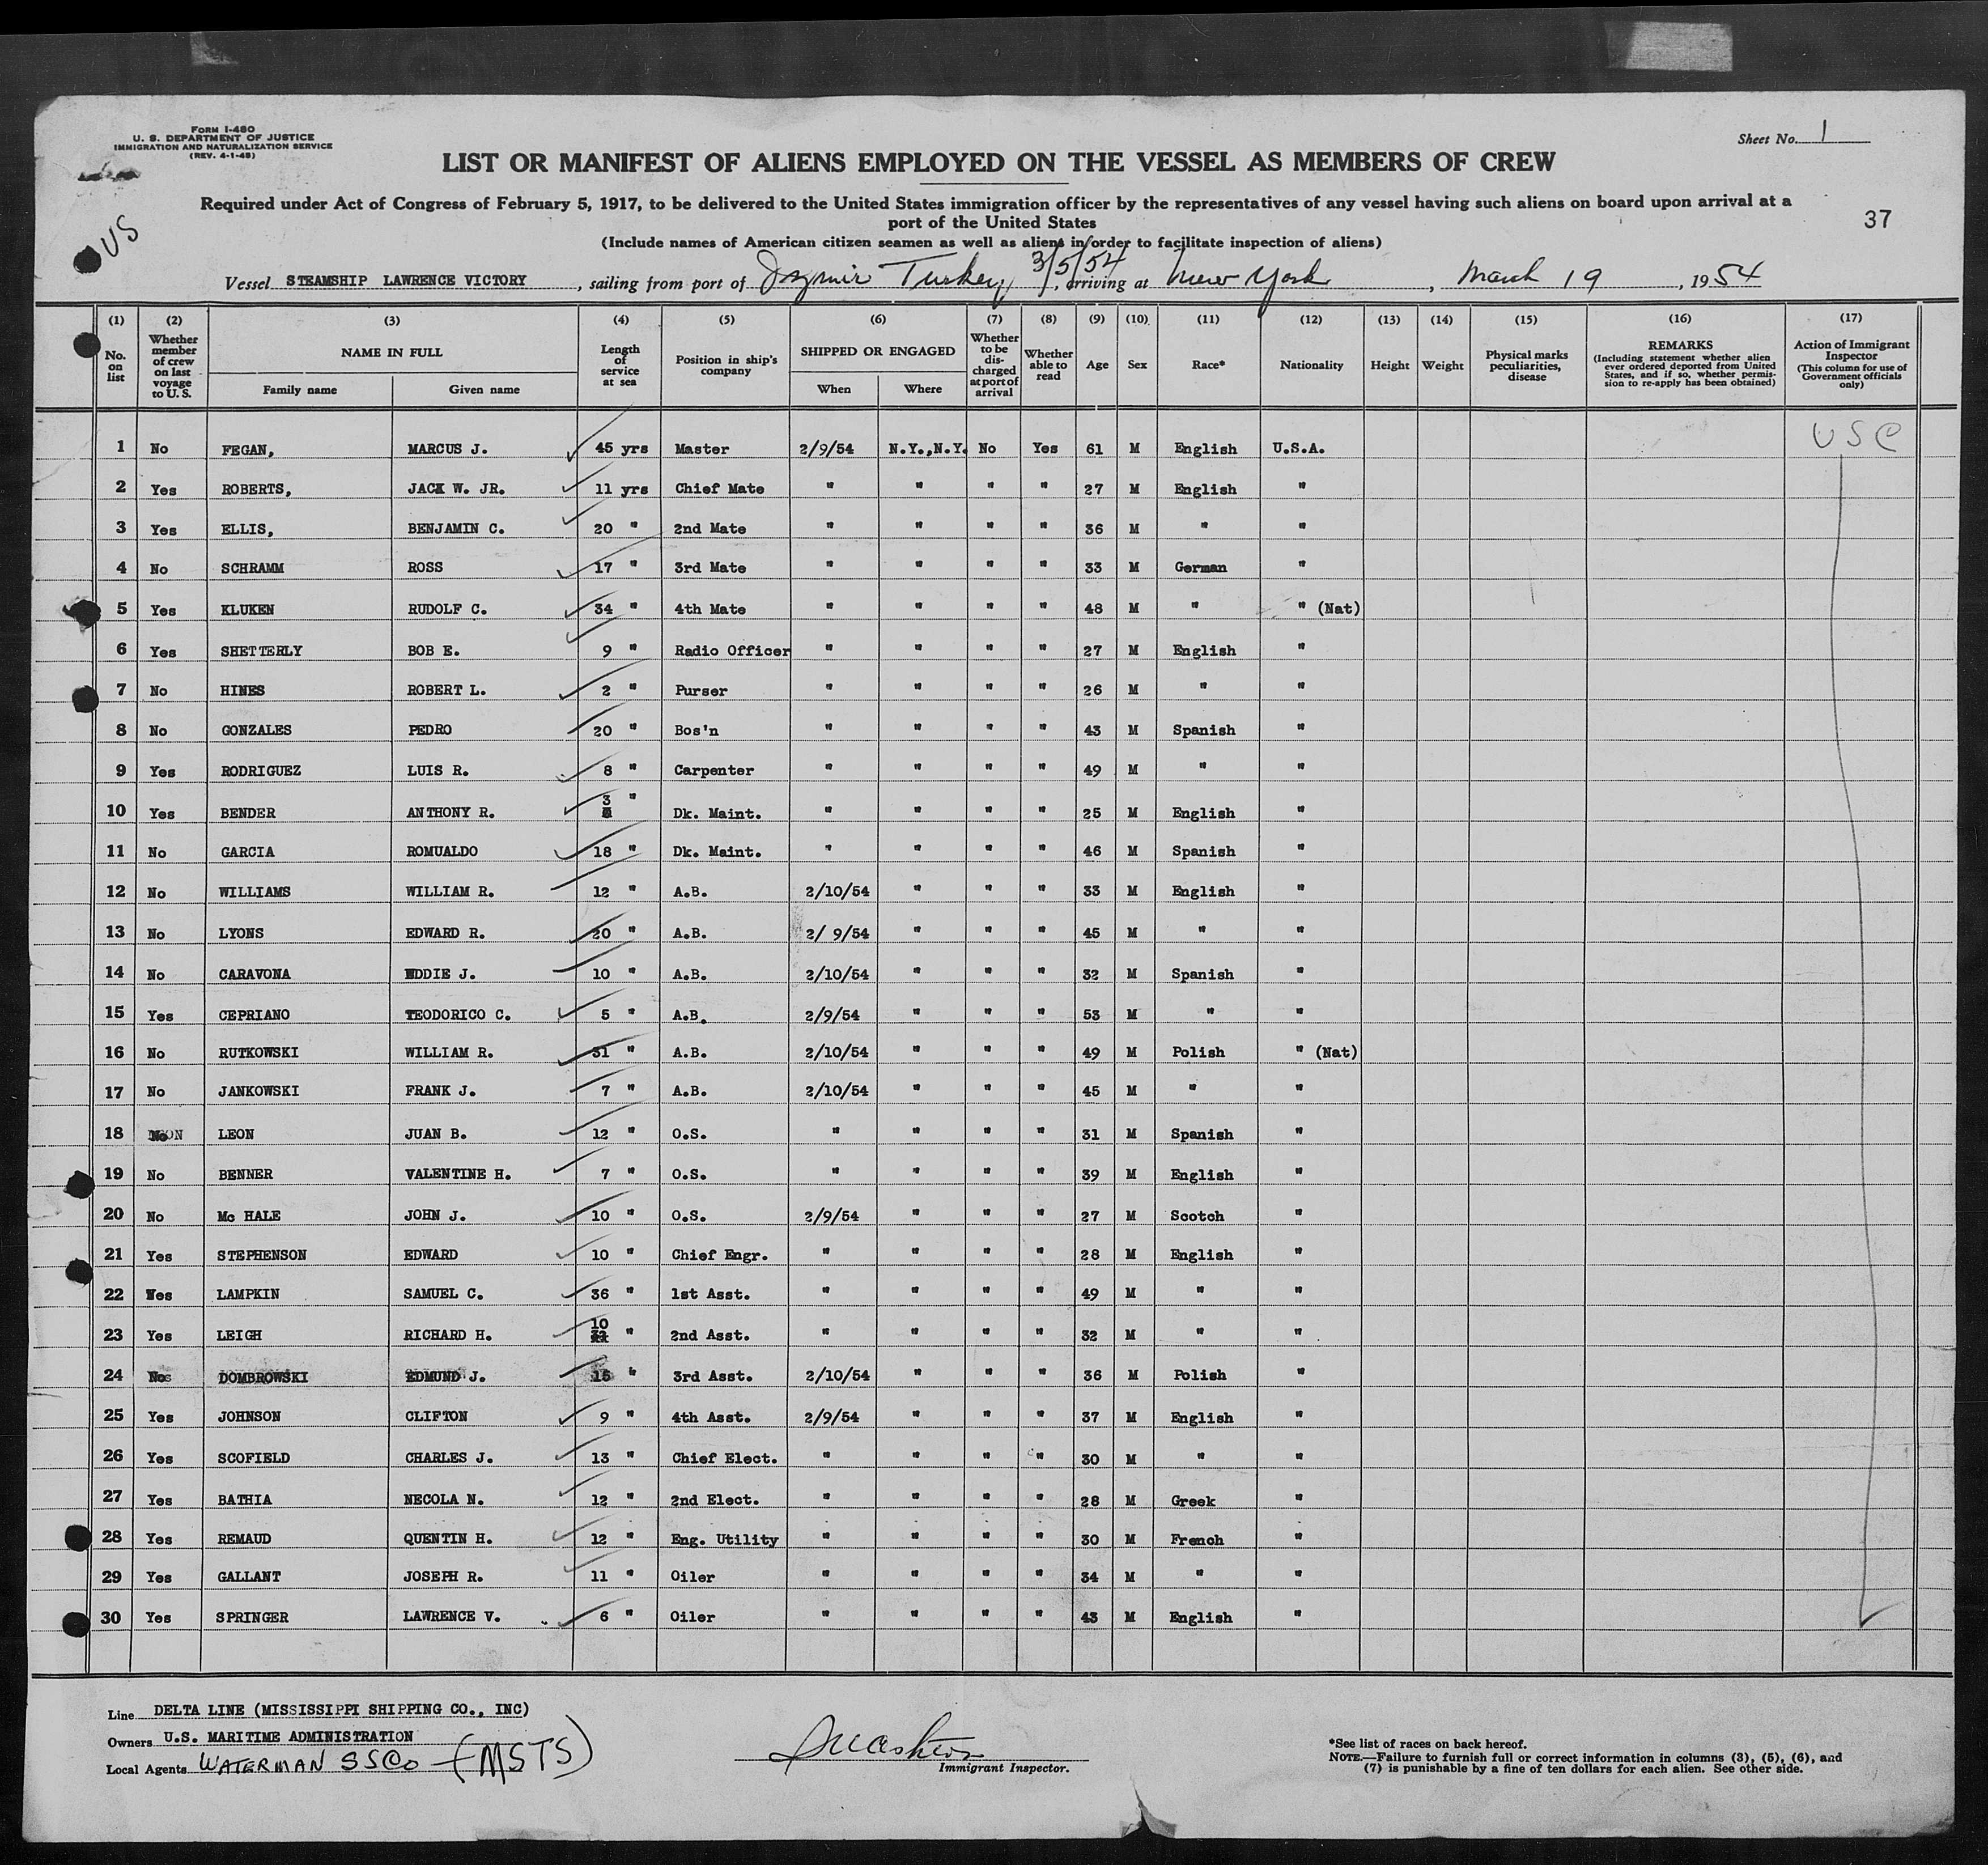 Form I-480
U. S. DEPARTMENT OF JUSTICE
IMMIGRATION AND NATURALIZATION SERVICE
(REV. 4-1-48)
Sheet No. 1
LIST OR MANIFEST OF ALIENS EMPLOYED ON THE VESSEL AS MEMBERS OF CREW
Required under Act of Congress of February 5, 1917, to be delivered to the United States immigration officer by the representatives of any vessel having such aliens on board upon arrival at a
port of the United States
37
US
(Include names of American citizen seamen as well as aliens in order to facilitate inspection of aliens)
Vessel STEAMSHIP LAWRENCE VICTORY, sailing from port of Izmir Turkey, 3/5/54, arriving at New York, March 19, 1954
(1) (2) (3) (4) (5) (6) (7) (8) (9) (10) (11) (12) (13) (14) (15) (16) (17)
No. on list Whether member of crew on last voyage to U. S. NAME IN FULL Family name Given name Length of service at sea Position in ship's company SHIPPED OR ENGAGED When Where Whether to be discharged at port of arrival Whether able to read Age Sex Race* Nationality Height Weight Physical marks peculiarities, disease REMARKS (Including statement whether alien ever ordered deported from United States, and if so, whether permission to re-apply has been obtained) Action of Immigrant Inspector (This column for use of Government officials only)
1 No FEGAN, MARCUS J. 45 yrs Master 2/9/54 N.Y.,N.Y. No Yes 61 M English U.S.A. USC
2 Yes ROBERTS, JACK W. JR. 11 yrs Chief Mate " " " " 27 M English "
3 Yes ELLIS, BENJAMIN C. 20 " 2nd Mate " " " " 36 M " "
4 No SCHRAMM ROSS 17 " 3rd Mate " " " " 33 M German "
5 Yes KLUKEN RUDOLF C. 34 " 4th Mate " " " " 48 M " " (Nat)
6 Yes SHETTERLY BOB E. 9 " Radio Officer " " " " 27 M English "
7 No HINES ROBERT L. 2 " Purser " " " " 26 M " "
8 No GONZALES PEDRO 20 " Bos'n " " " " 43 M Spanish "
9 Yes RODRIGUEZ LUIS R. 8 " Carpenter " " " " 49 M " "
10 Yes BENDER ANTHONY R. 3 " Dk. Maint. " " " " 25 M English "
11 No GARCIA ROMUALDO 18 " Dk. Maint. " " " " 46 M Spanish "
12 No WILLIAMS WILLIAM R. 12 " A.B. 2/10/54 " " " 33 M English "
13 No LYONS EDWARD R. 20 " A.B. 2/ 9/54 " " " 45 M " "
14 No CARAVONA EDDIE J. 10 " A.B. 2/10/54 " " " 32 M Spanish "
15 Yes CEPRIANO TEODORICO C. 5 " A.B. 2/9/54 " " " 53 M " "
16 No RUTKOWSKI WILLIAM R. 31 " A.B. 2/10/54 " " " 49 M Polish " (Nat)
17 No JANKOWSKI FRANK J. 7 " A.B. 2/10/54 " " " 45 M " "
18 No LEON JUAN B. 12 " O.S. " " " " 31 M Spanish "
19 No BENNER VALENTINE H. 7 " O.S. " " " " 39 M English "
20 No Mc HALE JOHN J. 10 " O.S. 2/9/54 " " " 27 M Scotch "
21 Yes STEPHENSON EDWARD 10 " Chief Engr. " " " " 28 M English "
22 Yes LAMPKIN SAMUEL C. 36 " 1st Asst. " " " " 49 M " "
23 Yes LEIGH RICHARD H. 10 " 2nd Asst. " " " " 32 M " "
24 No DOMBROWSKI EDMUND J. 15 " 3rd Asst. 2/10/54 " " " 36 M Polish "
25 Yes JOHNSON CLIFTON 9 " 4th Asst. 2/9/54 " " " 37 M English "
26 Yes SCOFIELD CHARLES J. 13 " Chief Elect. " " " " 30 M " "
27 Yes BATHIA NECOLA N. 12 " 2nd Elect. " " " " 28 M Greek "
28 Yes REMAUD QUENTIN H. 12 " Eng. Utility " " " " 30 M French "
29 Yes GALLANT JOSEPH R. 11 " Oiler " " " " 34 M " "
30 Yes SPRINGER LAWRENCE V. 6 " Oiler " " " " 43 M English "
Line DELTA LINE (MISSISSIPPI SHIPPING CO., INC)
Owners U.S. MARITIME ADMINISTRATION
Local Agents WATERMAN SSCo - (MSTS)
Immigrant Inspector.
*See list of races on back hereof.
NOTE.—Failure to furnish full or correct information in columns (3), (5), (6), and
(7) is punishable by a fine of ten dollars for each alien. See other side.